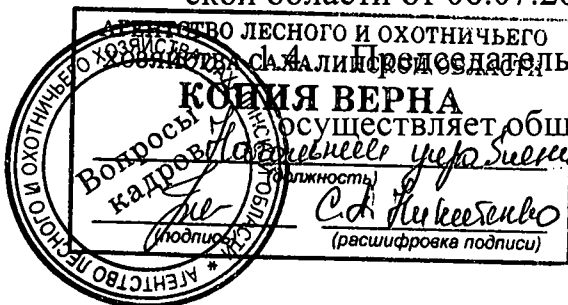 ской области от 06.07.20
АГЕНТСТВО ЛЕСНОГО И ОХОТНИЧЬЕГО
ХОЗЯЙСТВА САХАЛИНСКОЙ ОБЛАСТИ
1.4. Председатель
КОПИЯ ВЕРНА
осуществляет общ
Начальник управлени
(должность)
С.А. Никитенко
(подпись) (расшифровка подписи)
Вопросы
кадров
* АГЕНТСТВО ЛЕСНОГО И ОХОТНИЧЬЕГО ХОЗЯЙСТВА САХАЛИНСКОЙ ОБЛАСТИ